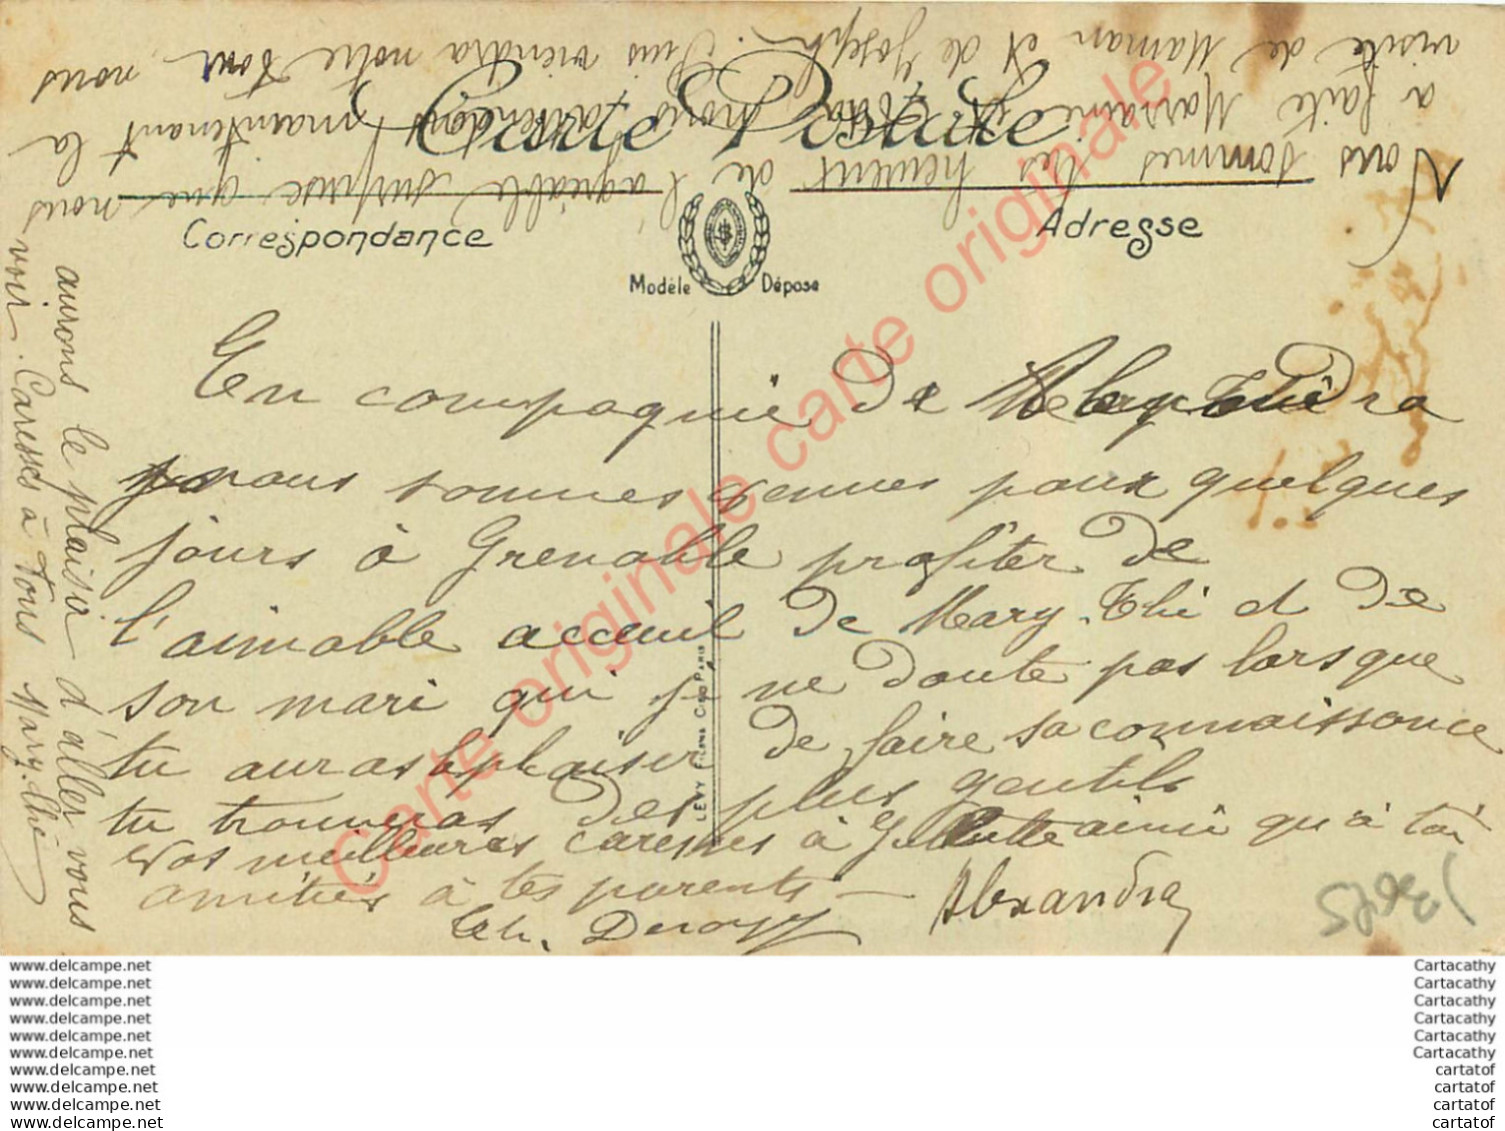 Nous sommes très heureux de l'agréable surprise que nous
a faite Marraine nous attendons maintenant la
visite de Maman et de Joseph. Puis viendra notre tour, nous
aurons le plaisir d'aller vous
voir. Caresses à tous Mary. Thé
Carte Postale
Correspondance
Adresse
Modèle Déposé
LEVY FILS & CIE PARIS
En compagnie de
nous sommes venues pour quelques
jours à Grenoble profiter de
l'aimable acceuil de Mary. Thé et de
son mari qui je ne doute pas lorsque
tu auras le plaisir de faire sa connaissance
tu trouveras des plus gentils
Nos meilleures caresses à ainsi qu'à toi
amitiés à tes parents —
Alexandra
13665
Carte originale carte originale carte originale
www.delcampe.net
www.delcampe.net
www.delcampe.net
www.delcampe.net
www.delcampe.net
www.delcampe.net
www.delcampe.net
www.delcampe.net
www.delcampe.net
www.delcampe.net
Cartacathy
Cartacathy
Cartacathy
Cartacathy
Cartacathy
Cartacathy
cartatof
cartatof
cartatof
cartatof